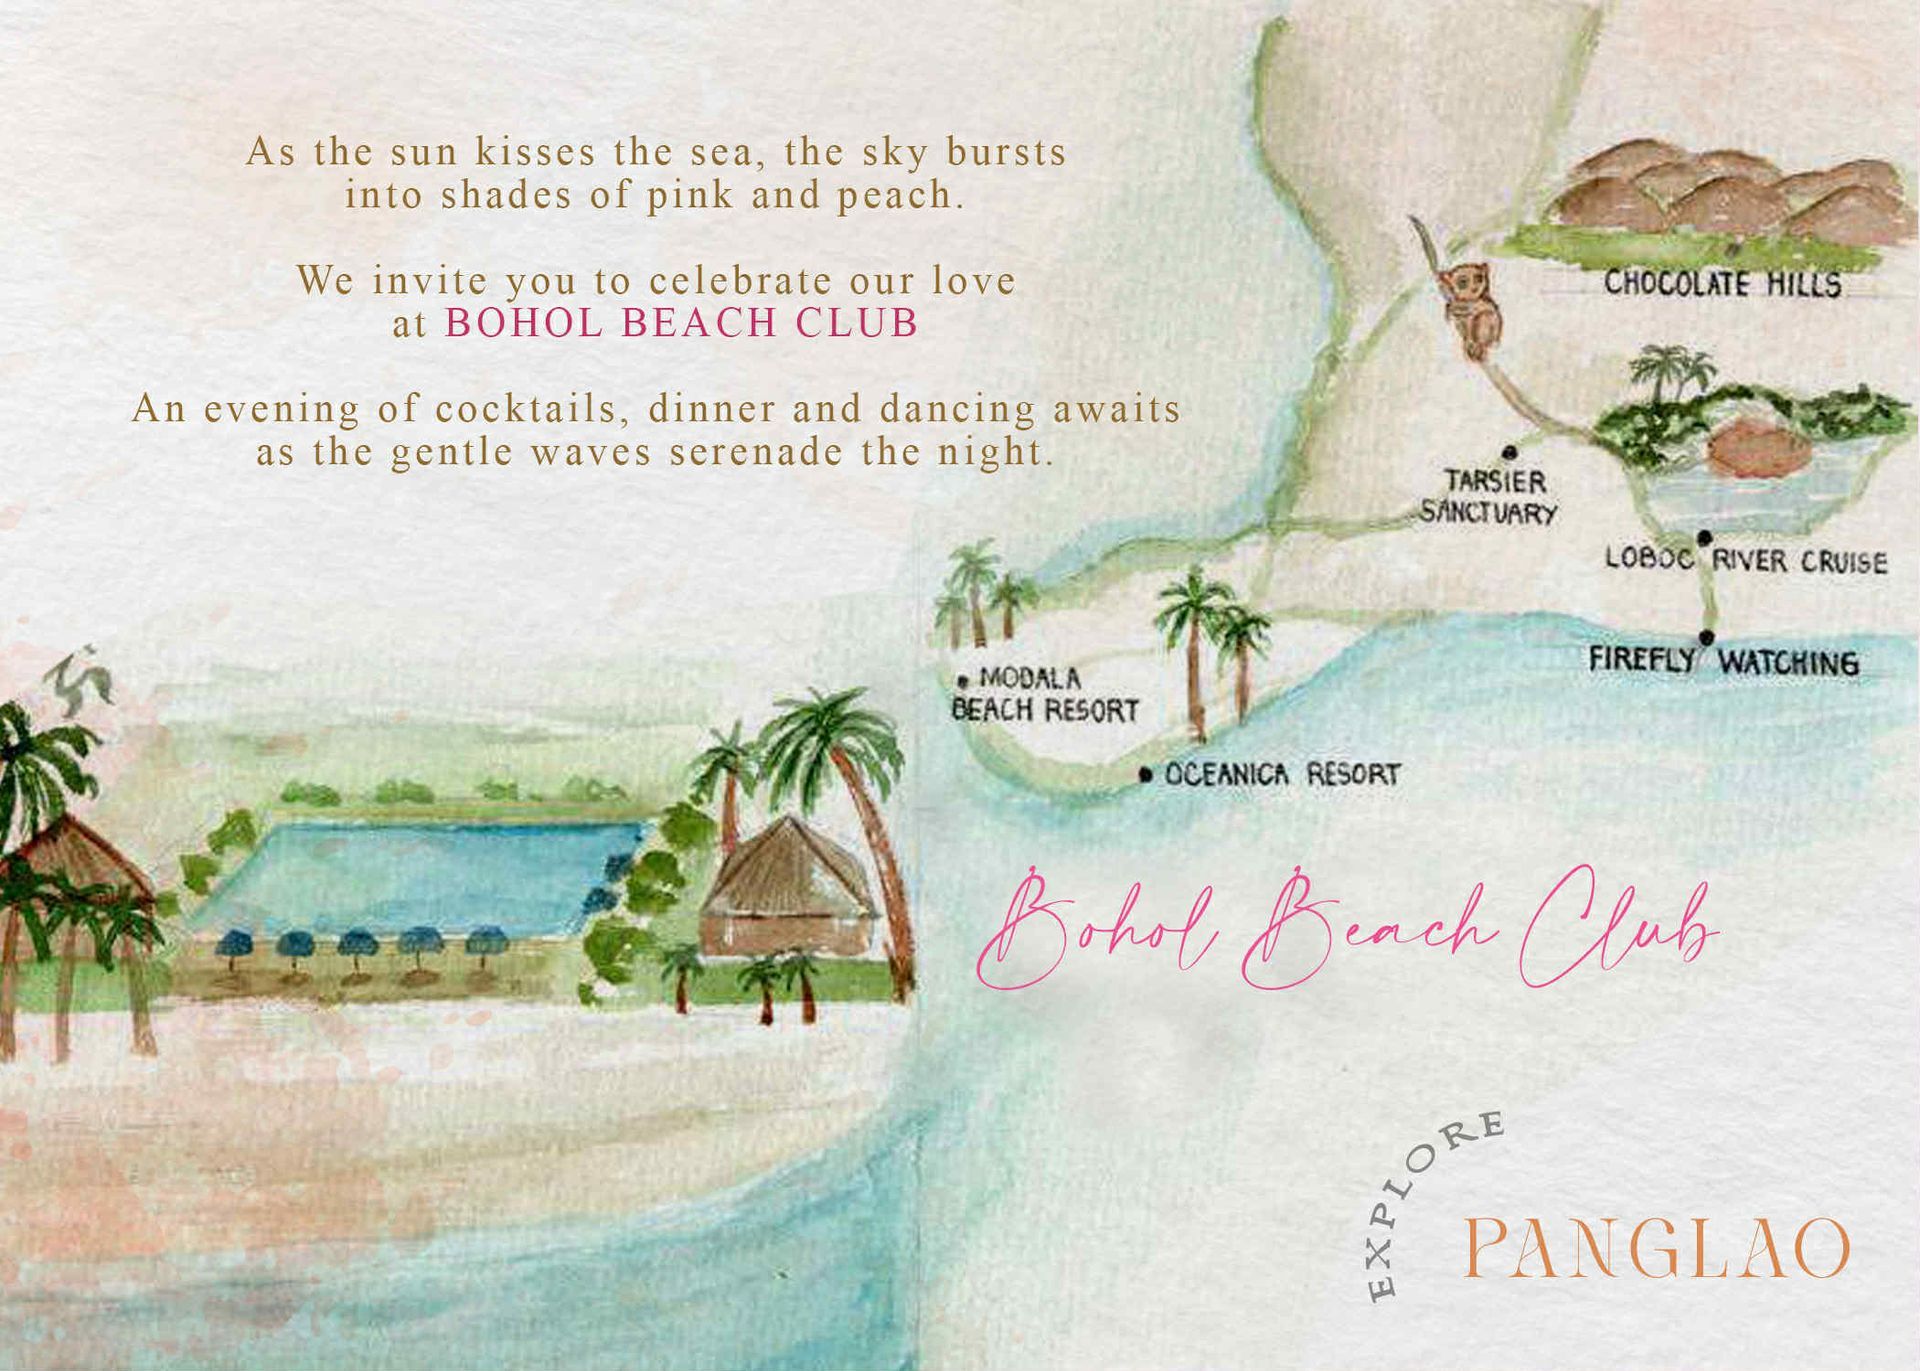 As the sun kisses the sea, the sky bursts
into shades of pink and peach.
We invite you to celebrate our love
at BOHOL BEACH CLUB
An evening of cocktails, dinner and dancing awaits
as the gentle waves serenade the night.
CHOCOLATE HILLS
TARSIER
SANCTUARY
LOBOC RIVER CRUISE
FIREFLY WATCHING
MODALA
BEACH RESORT
OCEANICA RESORT
Bohol Beach Club
EXPLORE
PANGLAO